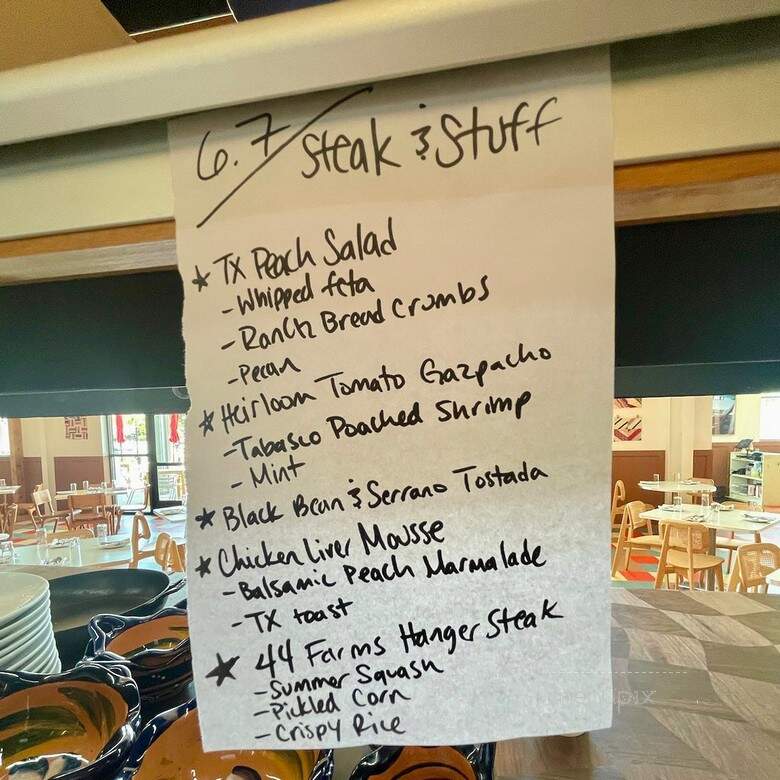 6.7/ Steak & Stuff
★ TX Peach Salad
- Whipped feta
- Ranch Bread Crumbs
- Pecan
★ Heirloom Tomato Gazpacho
- Tabasco Poached Shrimp
- Mint
★ Black Bean & Serrano Tostada
★ Chicken Liver Mousse
- Balsamic Peach Marmalade
- TX toast
★ 44 Farms Hanger Steak
- Summer Squash
- Pickled Corn
- Crispy Rice